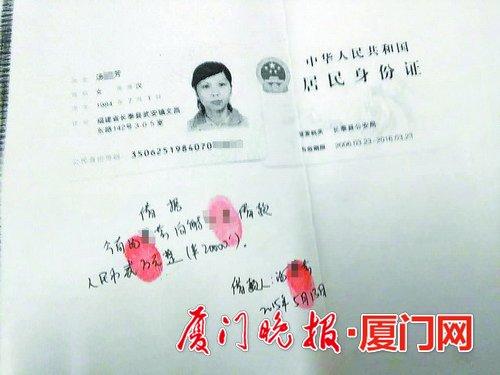 汤 芳
女 汉
1984 年 7 月 1 日
福建省长泰县武安镇文昌
东路142号305室
公民身份号码 3506251984070
中华人民共和国
居民身份证
签发机关 长泰县公安局
有效期限 2006.03.23-2016.03.23
借据
今有 芳向 借款
人民币贰万元整(¥20000).
借款人: 汤 芳
2015年5月13日
厦门晚报·厦门网